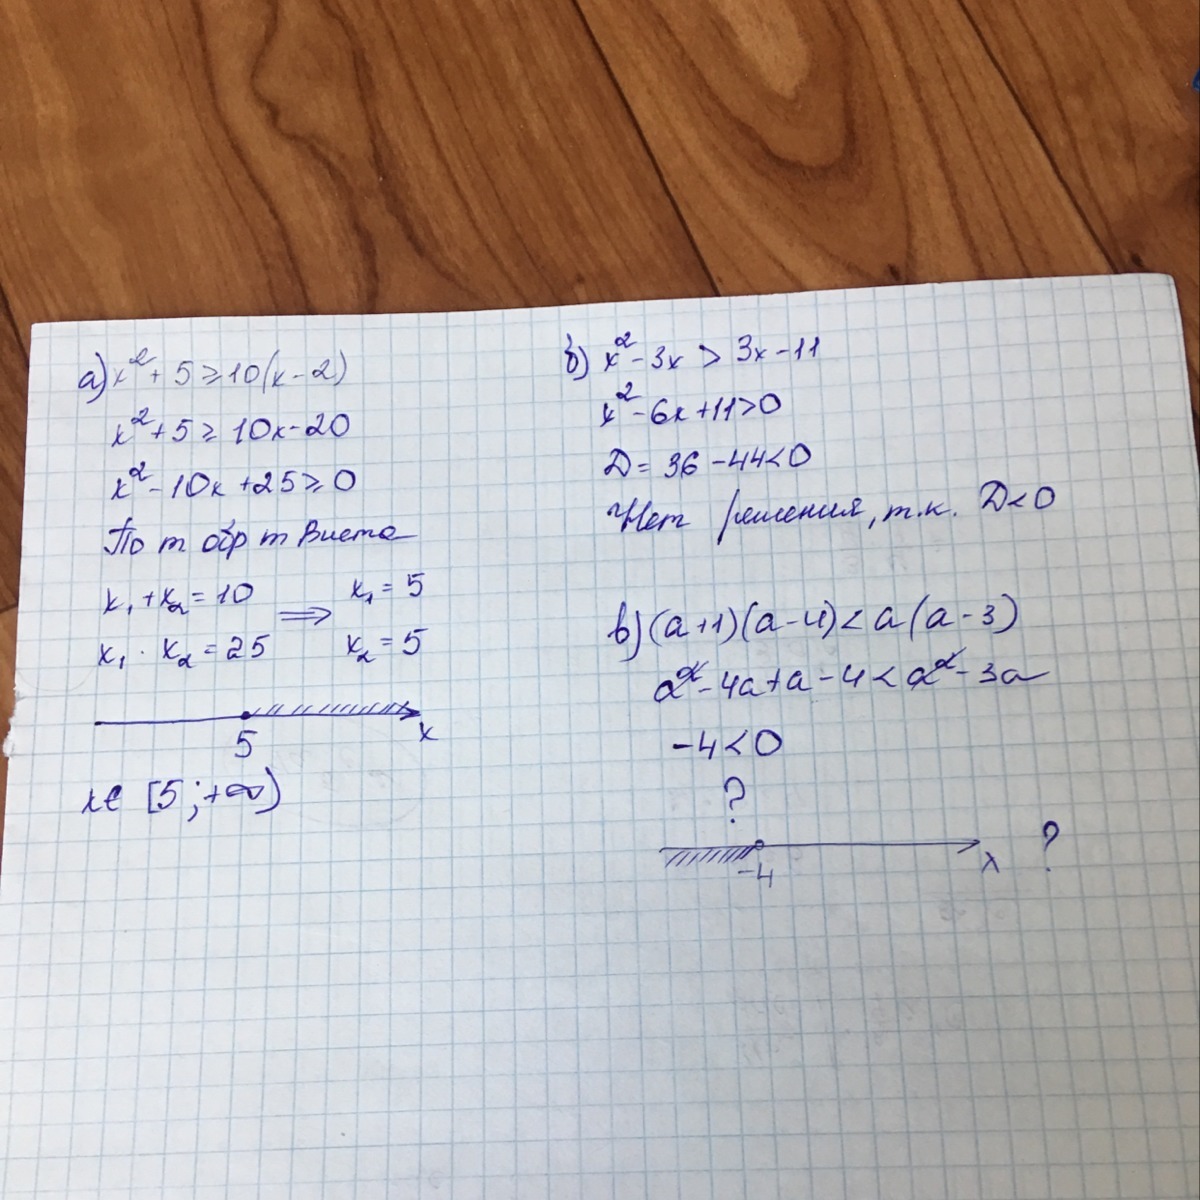 а) x² + 5 ≥ 10(x - 2)
x² + 5 ≥ 10x - 20
x² - 10x + 25 ≥ 0
По т обр т Виета
x₁ + x₂ = 10
x₁ · x₂ = 25
⇒
x₁ = 5
x₂ = 5
5
x
x ∈ [5; +∞)
б) x² - 3x > 3x - 11
x² - 6x + 11 > 0
D = 36 - 44 < 0
Нет решения, т.к. D < 0
в) (a + 1)(a - 4) < a(a - 3)
a² - 4a + a - 4 < a² - 3a
-4 < 0
?
-4
x
?